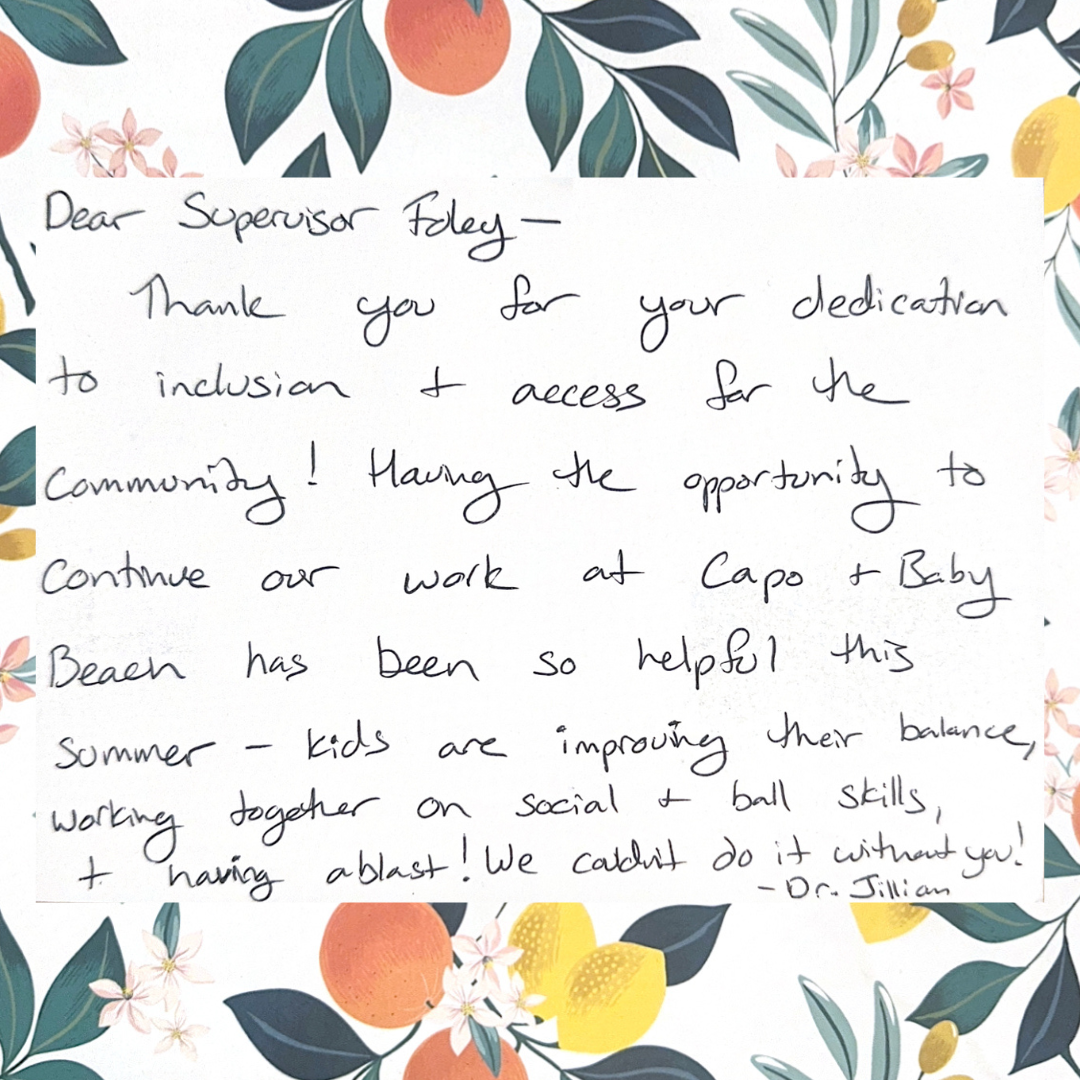 Dear Supervisor Foley –
Thank you for your dedication
to inclusion + access for the
Community! Having the opportunity to
Continue our work at Capo + Baby
Beach has been so helpful this
Summer – kids are improving their balance,
working together on social + ball skills,
+ having a blast! We couldn't do it without you!
- Dr. Jillian